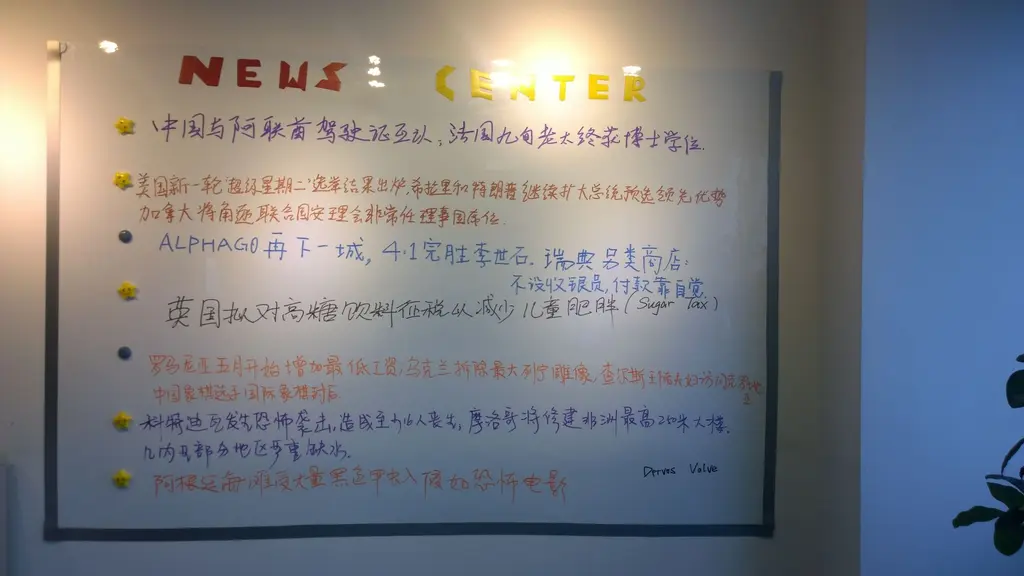 NEWS CENTER
中国与阿联酋驾驶证互认,法国九旬老太终获博士学位.
美国新一轮超级星期二选举结果出炉,希拉里和特朗普继续扩大总统预选领先优势
加拿大将角逐联合国安理会非常任理事国席位.
ALPHAGO再下一城, 4:1完胜李世石. 瑞典另类商店:
不设收银员,付款靠自觉
英国拟对高糖饮料征税以减少儿童肥胖(Sugar Tax)
罗马尼亚五月开始增加最低工资,乌克兰拆除最大列宁雕像,查尔斯王储夫妇访问克罗地亚
中国象棋选手国际象棋
科特迪瓦发生恐怖袭击,造成至少16人丧生,摩洛哥将修建非洲最高250米大楼.
几内亚部分地区严重缺水.
阿根廷海滩受大量黑色甲虫入侵如恐怖电影